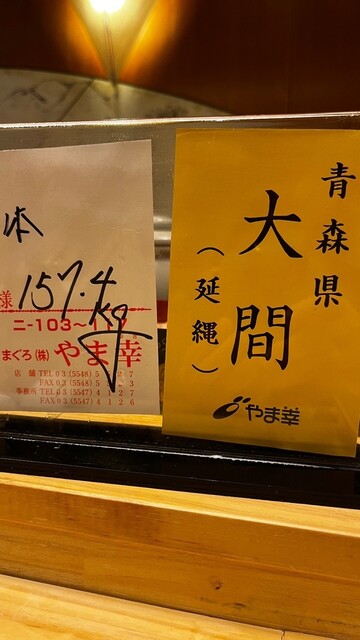 本
様 157.4
kg
ニ-103~1
まぐろ(株) やま幸
店舗 TEL 03 (5548) 5 27
FAX 03 (5548) 5 3
事務所 TEL 03 (5547) 4127
FAX 03 (5547) 4126
青森県
大間
(延縄)
やま幸